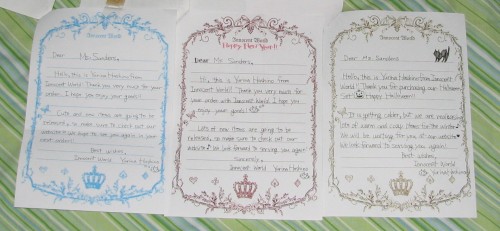 Innocent World
Dear Ms. Sanders,
Hello, this is Yurina Hoshino from
Innocent World. Thank you very much for your
order. I hope you enjoy your goods!
Cute and new items are going to be
released, so make sure to check out our
Best wishes,
Innocent World Yurina Hoshino
Innocent World
Happy New Year!!
Dear Ms. Sanders,
Hi, this is Yurina Hoshino from
Innocent World! Thank you very much for
your order with Innocent World. I hope you
enjoy your goods!
Lots of new items are going to be
released, so make sure to check out our
website♪ We look forward to serving you again!
Sincerely,
Innocent World Yurina Hoshino
Innocent World
Dear Ms. Sanders
Hello, this is Yurina Hoshino from Innocent
World! Thank you for purchasing our Halloween
Happy Halloween!
It is getting colder, but we are
of warm and cozy items for the winter♪
We will be waiting for you at our website
We look forward to serving you again!
Best wishes,
Innocent World
Yurina Hoshino